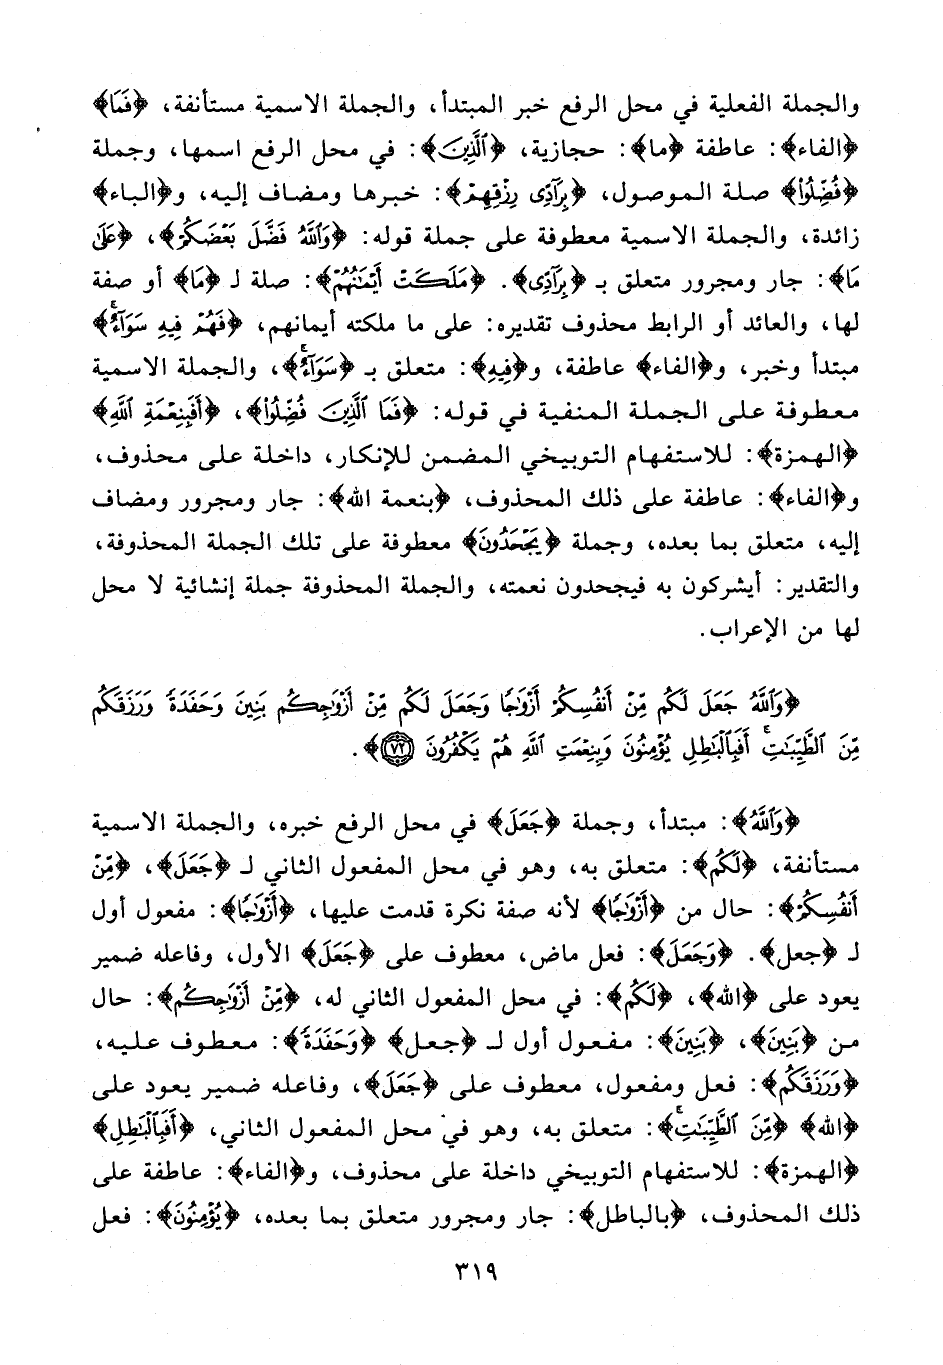 والجملة الفعلية في محل الرفع خبر المبتدأ، والجملة الاسمية مستأنفة، ﴿فَمَا﴾
﴿الفاء﴾: عاطفة ﴿ما﴾: حجازية، ﴿ٱلَّذِينَ﴾: في محل الرفع اسمها، وجملة
﴿فُضِّلُوا۟﴾ صلة الموصول، ﴿بِرَآدِّى رِزْقِهِمْ﴾: خبرها ومضاف إليه، و﴿الباء﴾
زائدة، والجملة الاسمية معطوفة على جملة قوله: ﴿وَٱللَّهُ فَضَّلَ بَعْضَكُمْ﴾، ﴿عَلَىٰ
مَا﴾: جار ومجرور متعلق بـ ﴿بِرَآدِّى﴾. ﴿مَلَكَتْ أَيْمَٰنُهُمْ﴾: صلة لـ ﴿مَا﴾ أو صفة
لها، والعائد أو الرابط محذوف تقديره: على ما ملكته أيمانهم، ﴿فَهُمْ فِيهِ سَوَآءٌ ۚ﴾
مبتدأ وخبر، و﴿الفاء﴾ عاطفة، و﴿فِيهِ﴾: متعلق بـ ﴿سَوَآءٌ ۚ﴾، والجملة الاسمية
معطوفة على الجملة المنفية في قوله: ﴿فَمَا ٱلَّذِينَ فُضِّلُوا۟﴾، ﴿أَفَبِنِعْمَةِ ٱللَّهِ﴾
﴿الهمزة﴾: للاستفهام التوبيخي المضمن للإنكار، داخلة على محذوف،
و﴿الفاء﴾: عاطفة على ذلك المحذوف، ﴿بنعمة الله﴾: جار ومجرور ومضاف
إليه، متعلق بما بعده، وجملة ﴿يَجْحَدُونَ﴾ معطوفة على تلك الجملة المحذوفة،
والتقدير: أيشركون به فيجحدون نعمته، والجملة المحذوفة جملة إنشائية لا محل
لها من الإعراب.
﴿وَٱللَّهُ جَعَلَ لَكُم مِّنْ أَنفُسِكُمْ أَزْوَٰجًا وَجَعَلَ لَكُم مِّنْ أَزْوَٰجِكُم بَنِينَ وَحَفَدَةً وَرَزَقَكُم
مِّنَ ٱلطَّيِّبَٰتِ ۚ أَفَبِٱلْبَٰطِلِ يُؤْمِنُونَ وَبِنِعْمَتِ ٱللَّهِ هُمْ يَكْفُرُونَ ٧٢﴾.
﴿وَٱللَّهُ﴾: مبتدأ، وجملة ﴿جَعَلَ﴾ في محل الرفع خبره، والجملة الاسمية
مستأنفة، ﴿لَكُم﴾: متعلق به، وهو في محل المفعول الثاني لـ ﴿جَعَلَ﴾، ﴿مِّنْ
أَنفُسِكُمْ﴾: حال من ﴿أَزْوَٰجًا﴾ لأنه صفة نكرة قدمت عليها، ﴿أَزْوَٰجًا﴾: مفعول أول
لـ ﴿جعل﴾. ﴿وَجَعَلَ﴾: فعل ماض، معطوف على ﴿جَعَلَ﴾ الأول، وفاعله ضمير
يعود على ﴿الله﴾، ﴿لَكُم﴾: في محل المفعول الثاني له، ﴿مِّنْ أَزْوَٰجِكُم﴾: حال
من ﴿بَنِينَ﴾، ﴿بَنِينَ﴾: مفعول أول لـ ﴿جعل﴾ ﴿وَحَفَدَةً﴾: معطوف عليه،
﴿وَرَزَقَكُم﴾: فعل ومفعول، معطوف على ﴿جَعَلَ﴾، وفاعله ضمير يعود على
﴿الله﴾ ﴿مِّنَ ٱلطَّيِّبَٰتِ ۚ﴾: متعلق به، وهو في محل المفعول الثاني، ﴿أَفَبِٱلْبَٰطِلِ﴾
﴿الهمزة﴾: للاستفهام التوبيخي داخلة على محذوف، و﴿الفاء﴾: عاطفة على
ذلك المحذوف، ﴿بالباطل﴾: جار ومجرور متعلق بما بعده، ﴿يُؤْمِنُونَ﴾: فعل
٣١٩